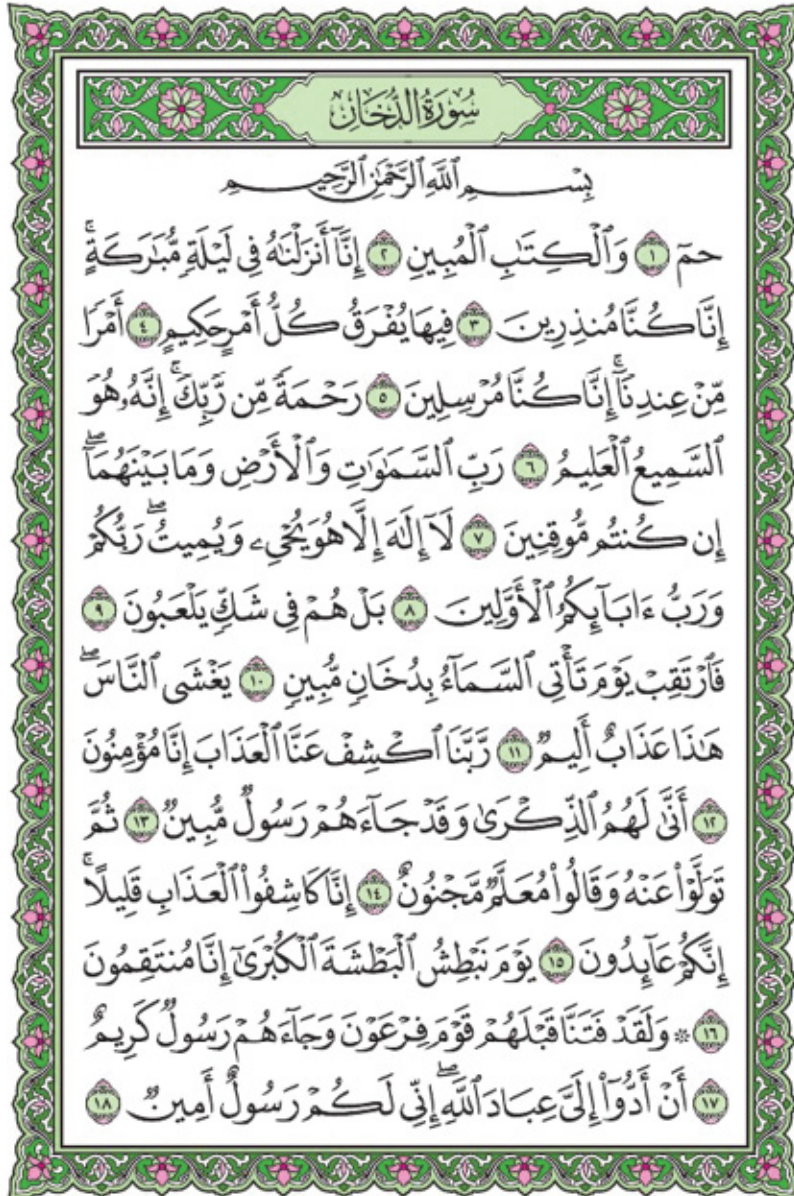 سُورَةُ الدُّخَانِ
بِسْمِ ٱللَّهِ ٱلرَّحْمَٰنِ ٱلرَّحِيمِ
حمٓ ١ وَٱلْكِتَٰبِ ٱلْمُبِينِ ٢ إِنَّآ أَنزَلْنَٰهُ فِى لَيْلَةٍ مُّبَٰرَكَةٍ ۚ
إِنَّا كُنَّا مُنذِرِينَ ٣ فِيهَا يُفْرَقُ كُلُّ أَمْرٍ حَكِيمٍ ٤ أَمْرًا
مِّنْ عِندِنَآ ۚ إِنَّا كُنَّا مُرْسِلِينَ ٥ رَحْمَةً مِّن رَّبِّكَ ۚ إِنَّهُۥ هُوَ
ٱلسَّمِيعُ ٱلْعَلِيمُ ٦ رَبِّ ٱلسَّمَٰوَٰتِ وَٱلْأَرْضِ وَمَا بَيْنَهُمَآ ۖ
إِن كُنتُم مُّوقِنِينَ ٧ لَآ إِلَٰهَ إِلَّا هُوَ يُحْىِۦ وَيُمِيتُ ۖ رَبُّكُمْ
وَرَبُّ ءَابَآئِكُمُ ٱلْأَوَّلِينَ ٨ بَلْ هُمْ فِى شَكٍّ يَلْعَبُونَ ٩
فَٱرْتَقِبْ يَوْمَ تَأْتِى ٱلسَّمَآءُ بِدُخَانٍ مُّبِينٍ ١٠ يَغْشَى ٱلنَّاسَ ۖ
هَٰذَا عَذَابٌ أَلِيمٌ ١١ رَّبَّنَا ٱكْشِفْ عَنَّا ٱلْعَذَابَ إِنَّا مُؤْمِنُونَ
١٢ أَنَّىٰ لَهُمُ ٱلذِّكْرَىٰ وَقَدْ جَآءَهُمْ رَسُولٌ مُّبِينٌ ١٣ ثُمَّ
تَوَلَّوْا۟ عَنْهُ وَقَالُوا۟ مُعَلَّمٌ مَّجْنُونٌ ١٤ إِنَّا كَاشِفُوا۟ ٱلْعَذَابِ قَلِيلًا ۚ
إِنَّكُمْ عَآئِدُونَ ١٥ يَوْمَ نَبْطِشُ ٱلْبَطْشَةَ ٱلْكُبْرَىٰٓ إِنَّا مُنتَقِمُونَ
١٦ ۞ وَلَقَدْ فَتَنَّا قَبْلَهُمْ قَوْمَ فِرْعَوْنَ وَجَآءَهُمْ رَسُولٌ كَرِيمٌ
١٧ أَنْ أَدُّوٓا۟ إِلَىَّ عِبَادَ ٱللَّهِ ۖ إِنِّى لَكُمْ رَسُولٌ أَمِينٌ ١٨